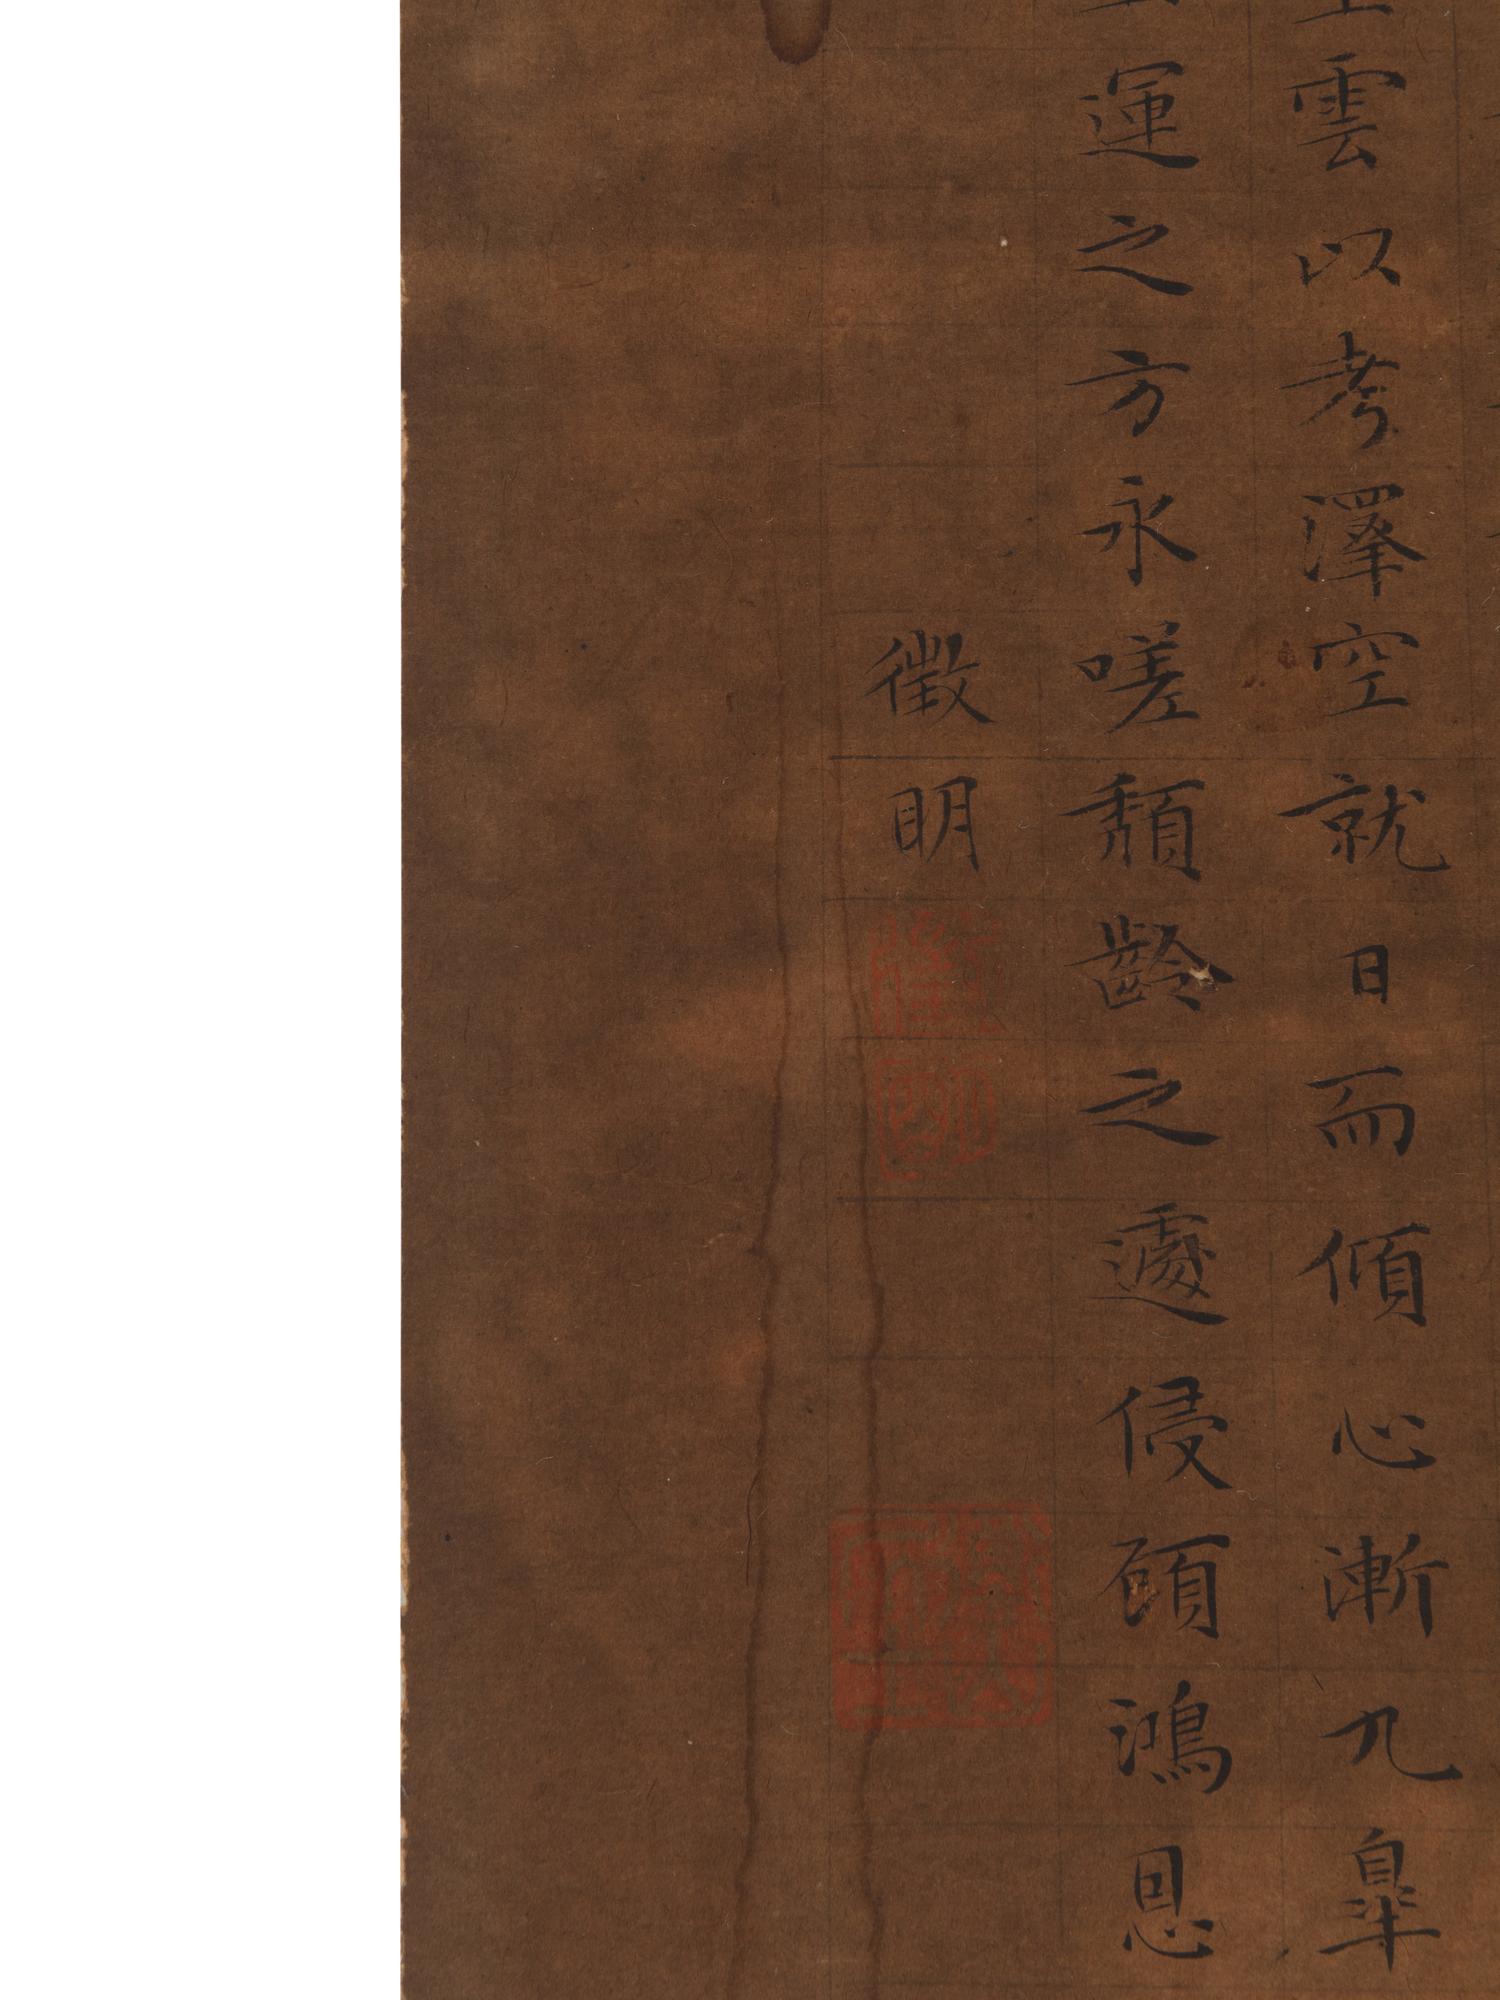 雲以考澤空就日而傾心漸九臯
運之方永嗟頹齡之遽侵顧鴻恩
徵明